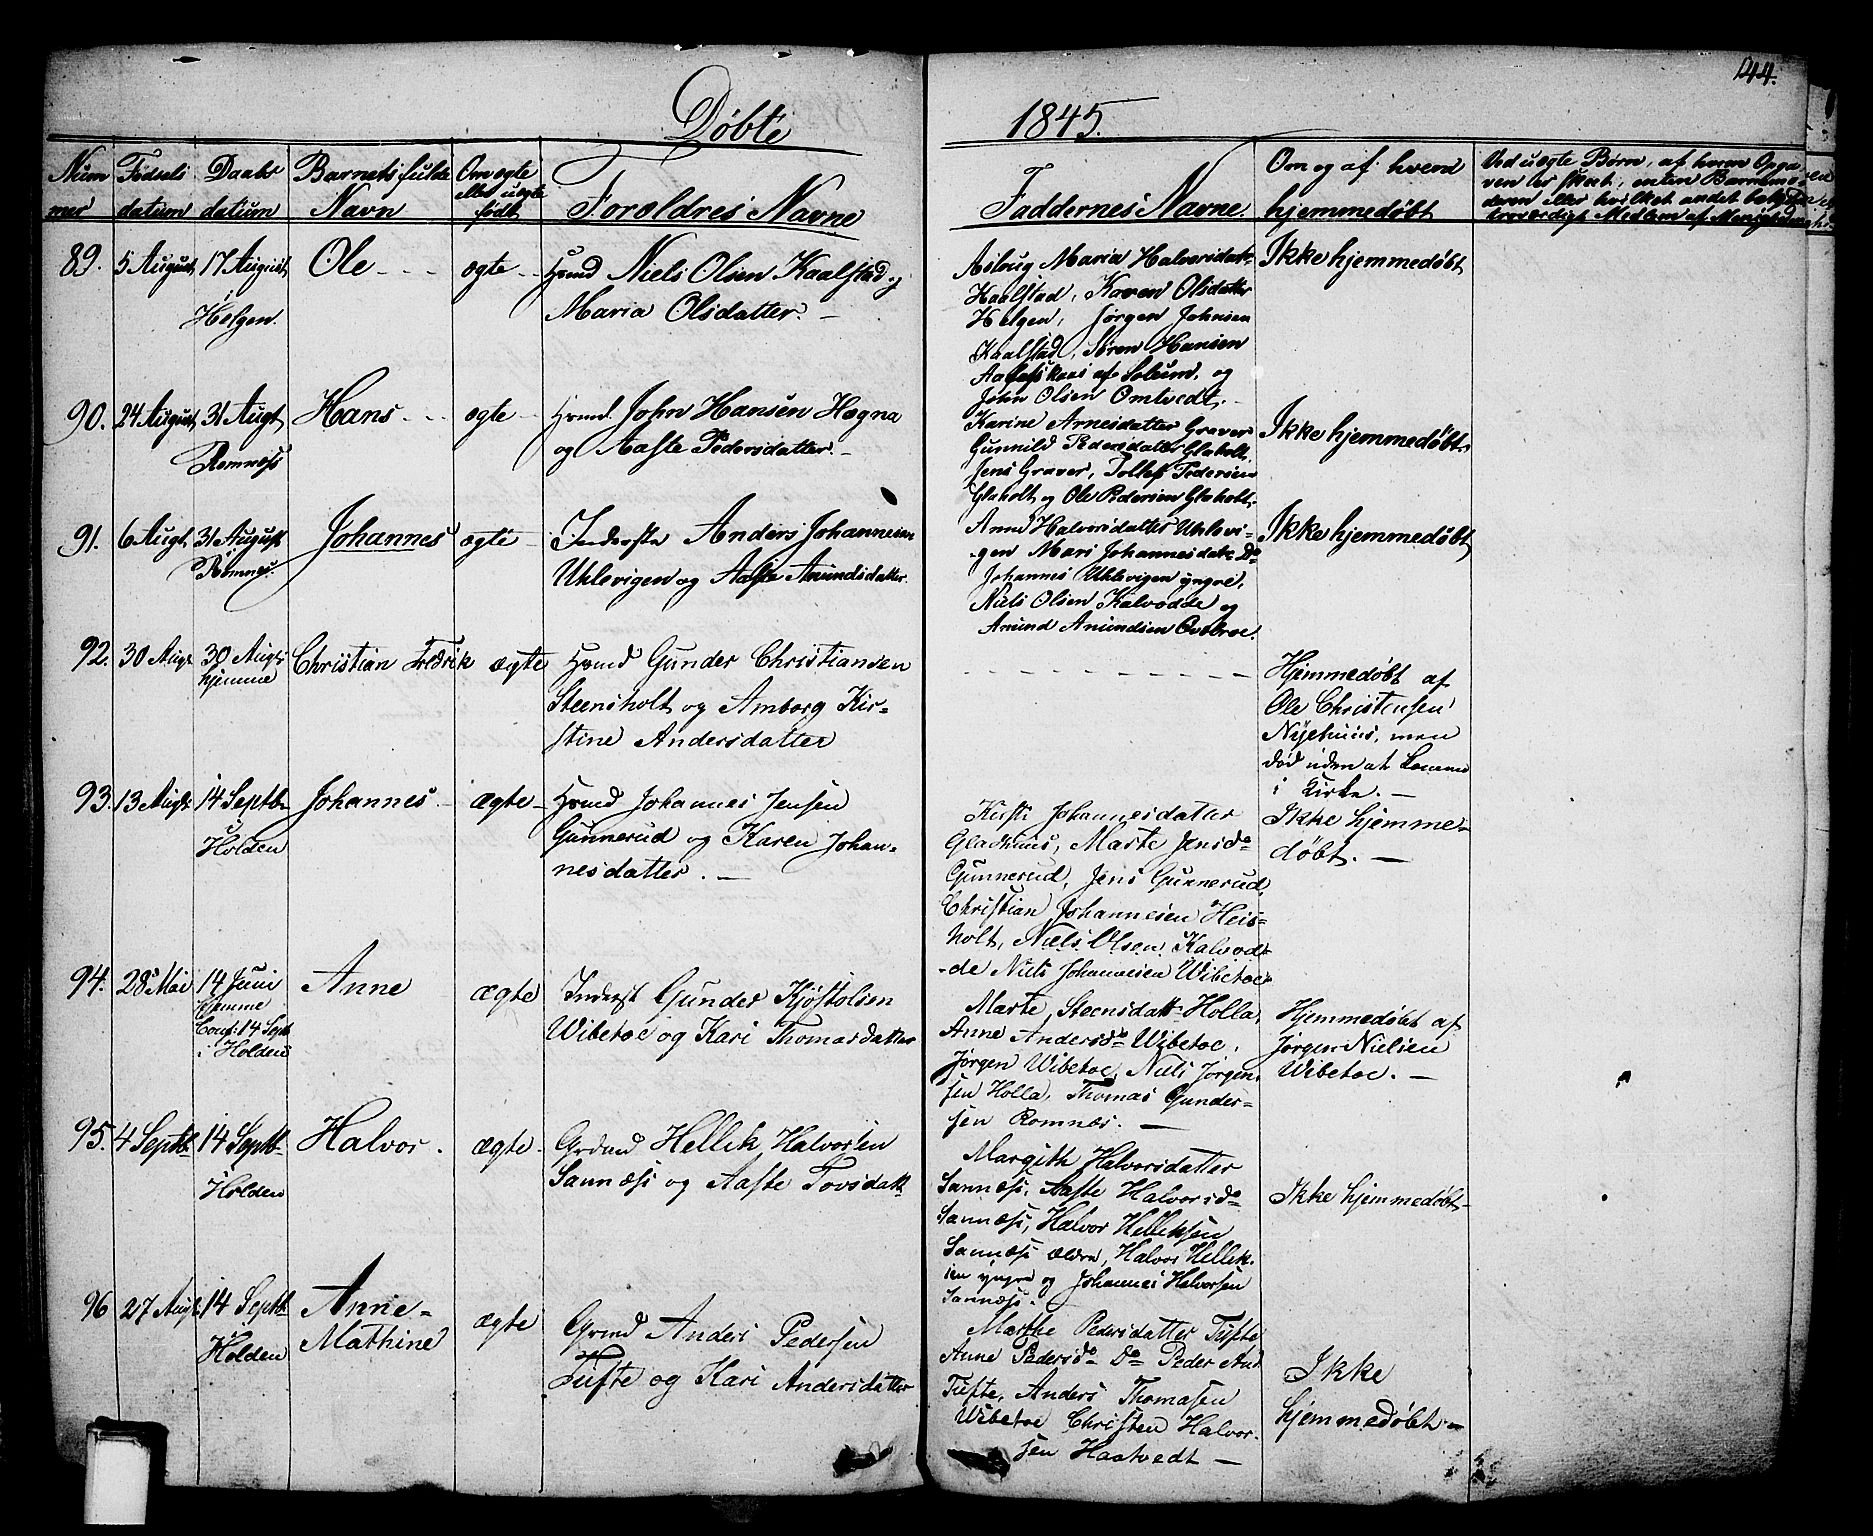 144.
Døbte
1845.
Num
mer
Fødsels
datum
Daabs
datum
Barnets fulde
Navn
Om ægte
eller uægte
født
Forældres Navne
Faddernes Navne.
Om og af hvem
hjemmedøbt
Ved uægte Børn, af hvem Opga
ven er skeet, enten Barnemo
deren eller hvilket andet
troværdigt Medlem af Menigheden
89.
5 August
17 August
i
Helgen.
Ole
ægte
Hmd Niels Olsen Kaalstad og
Maria Olsdatter. –
Aslaug Maria Halvorsdatt.
Kaalstad, Karen Olsdatter
Helgen, Jørgen Johnsen
Kaalstad, Søren Hansen
af Solum, og
John Olsen Omtvedt. –
Ikke hjemmedøbt
90.
24 August
31 Augt
Romnæss
Hans
ægte
Hmd. John Hansen Hægna
og Aaste Pedersdatter. –
Karine Arnesdatter Graver
Gunnild Pedersdatter Glaholt,
Jens Graver, Tollef Pedersen
Glaholt og Ole Pedersen Glaholt.
Ikke hjemmedøbt.
91.
6 Augt
31 August
i
Romnes.
Johannes
ægte
Inderste Anders Johannesen
Uhlevigen og Aaste Amundsdatter.
Anne Halvorsdatter Uhlevi-
gen Mari Johannesdatr Do
Johannes Uhlevigen yngre,
Niels Olsen Kalvodde og
Amund Amundsen Ovebroe.
Ikke hjemmedøbt
92.
30 Augt
30 Augt
hjemme
Christian Fredrik
ægte
Hmd Gunder Christiansen
Steensholt og Amborg Kir-
stine Andersdatter
Hjemmedøbt af
Ole Christensen
Nyehuus, men
død uden at komme
i Kirke. –
93.
13 Augt
14 Septbr
i
Holden
Johannes
ægte
Hmd Johannes Jensen
Gunnerud og Karen Johan-
nesdatter. –
Kirsti Johannesdatter
Gladhuus, Marte Jensdr
Gunnerud, Jens Gunnerud,
Christian Johannesen Heis-
holt, Niels Olsen Kalvod-
de Niels Johannesen Wibetoe
Ikke hjemme-
døbt. –
94.
28 Mai
14 Juni
hjemme
Conf: 14 Sept
i Holden
Anne
ægte
Inderst Gunder Kjøstolsen
Wibetoe og Kari Thomasdatter
Marte Steensdatt Holla,
Anne Andersdr Wibetoe,
Jørgen Wibetoe, Niels Jørgen-
sen Holla, Thomas Gunder-
sen Romnæs. –
Hjemmedøbt af
Jørgen Nielsen
Wibetoe. –
95.
4 Septbr
14 Septbr
Holden
Halvor.
ægte
Grdmd Hellik Halvorsen
Sannæss og Aaste Tovsdatt
Margith Halvorsdatter
Sannæss, Aaste Halvorsdr
Sannæss, Halvor Helliksen
Sannæss ældre, Halvor Hellik-
sen yngre og Johannes Halvorsen
Sannæss. –
Ikke hjemmedøbt
96
27 Augt
14 Septbr
i
Holden
Anne-
Mathine
ægte
Grmd Anders Pedersen
Tufte og Kari Andersdatter
Marthe Pedersdatter Tufte
Anne Pedersdr Do Peder And.
Tufte, Anders Thomasen
Wibetoe Christen Halvor-
sen Haatvedt –
Ikke
hjemmedøbt –